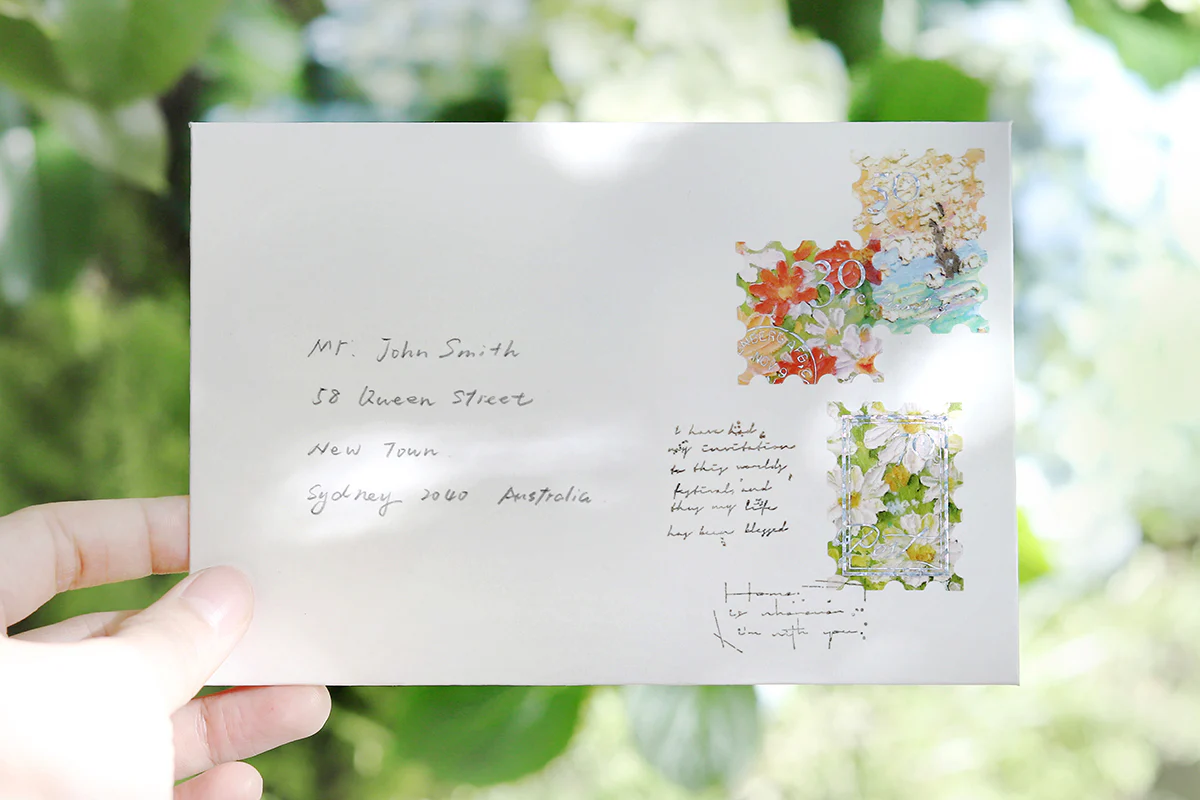 Mr. John Smith
58 Queen Street
New Town
Sydney 2040 Australia
50
30
c
I have had
my invitation
to this world's
festival and
thus my life
has been blessed
Home
is wherever
i'm with you.